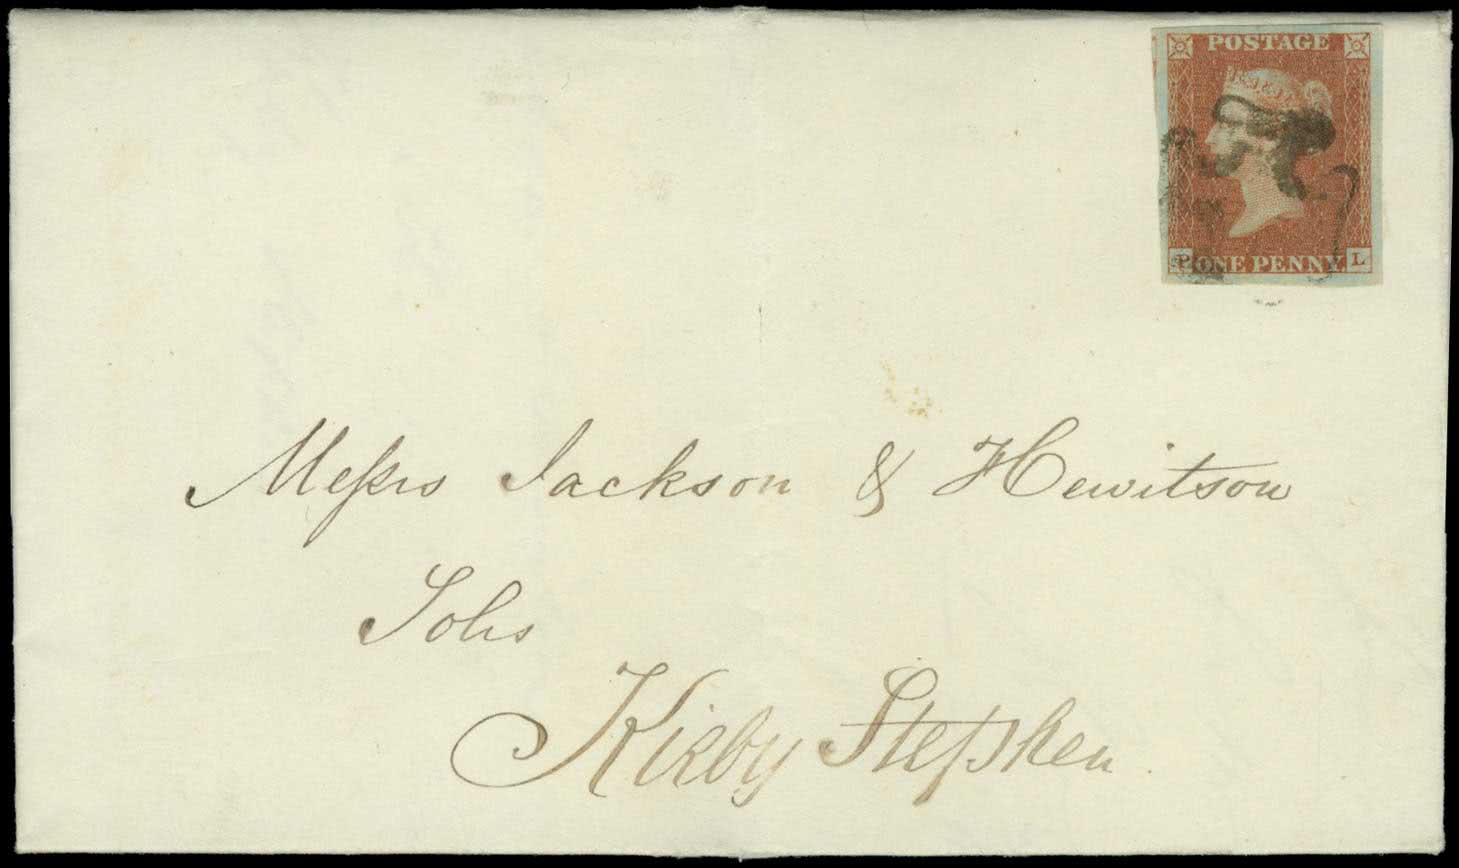 POSTAGE
P ONE PENNY L
Meſsrs Jackson & Hewitson
Solrs
Kirby Stephen